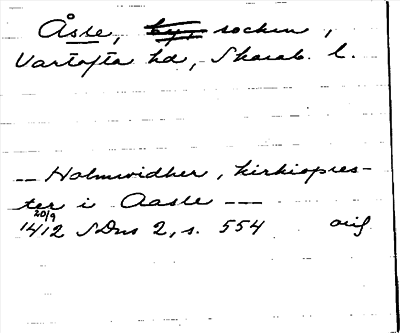 Åsle, socken,
Vartofta hd, Skarab. l.
-- Holmvidher, kirkiopres-
ter i Aasle ---
20/9
1412 SDns 2, s. 554 orig